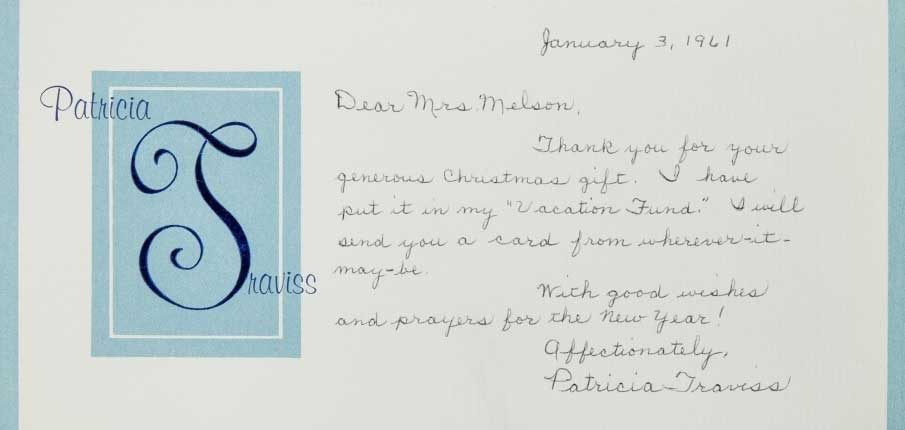 January 3, 1961
Patricia
Traviss
Dear Mrs. Melson,
Thank you for your
generous Christmas gift. I have
put it in my "Vacation Fund." I will
send you a card from wherever-it-
may-be.
With good wishes
and prayers for the New Year!
Affectionately,
Patricia Traviss